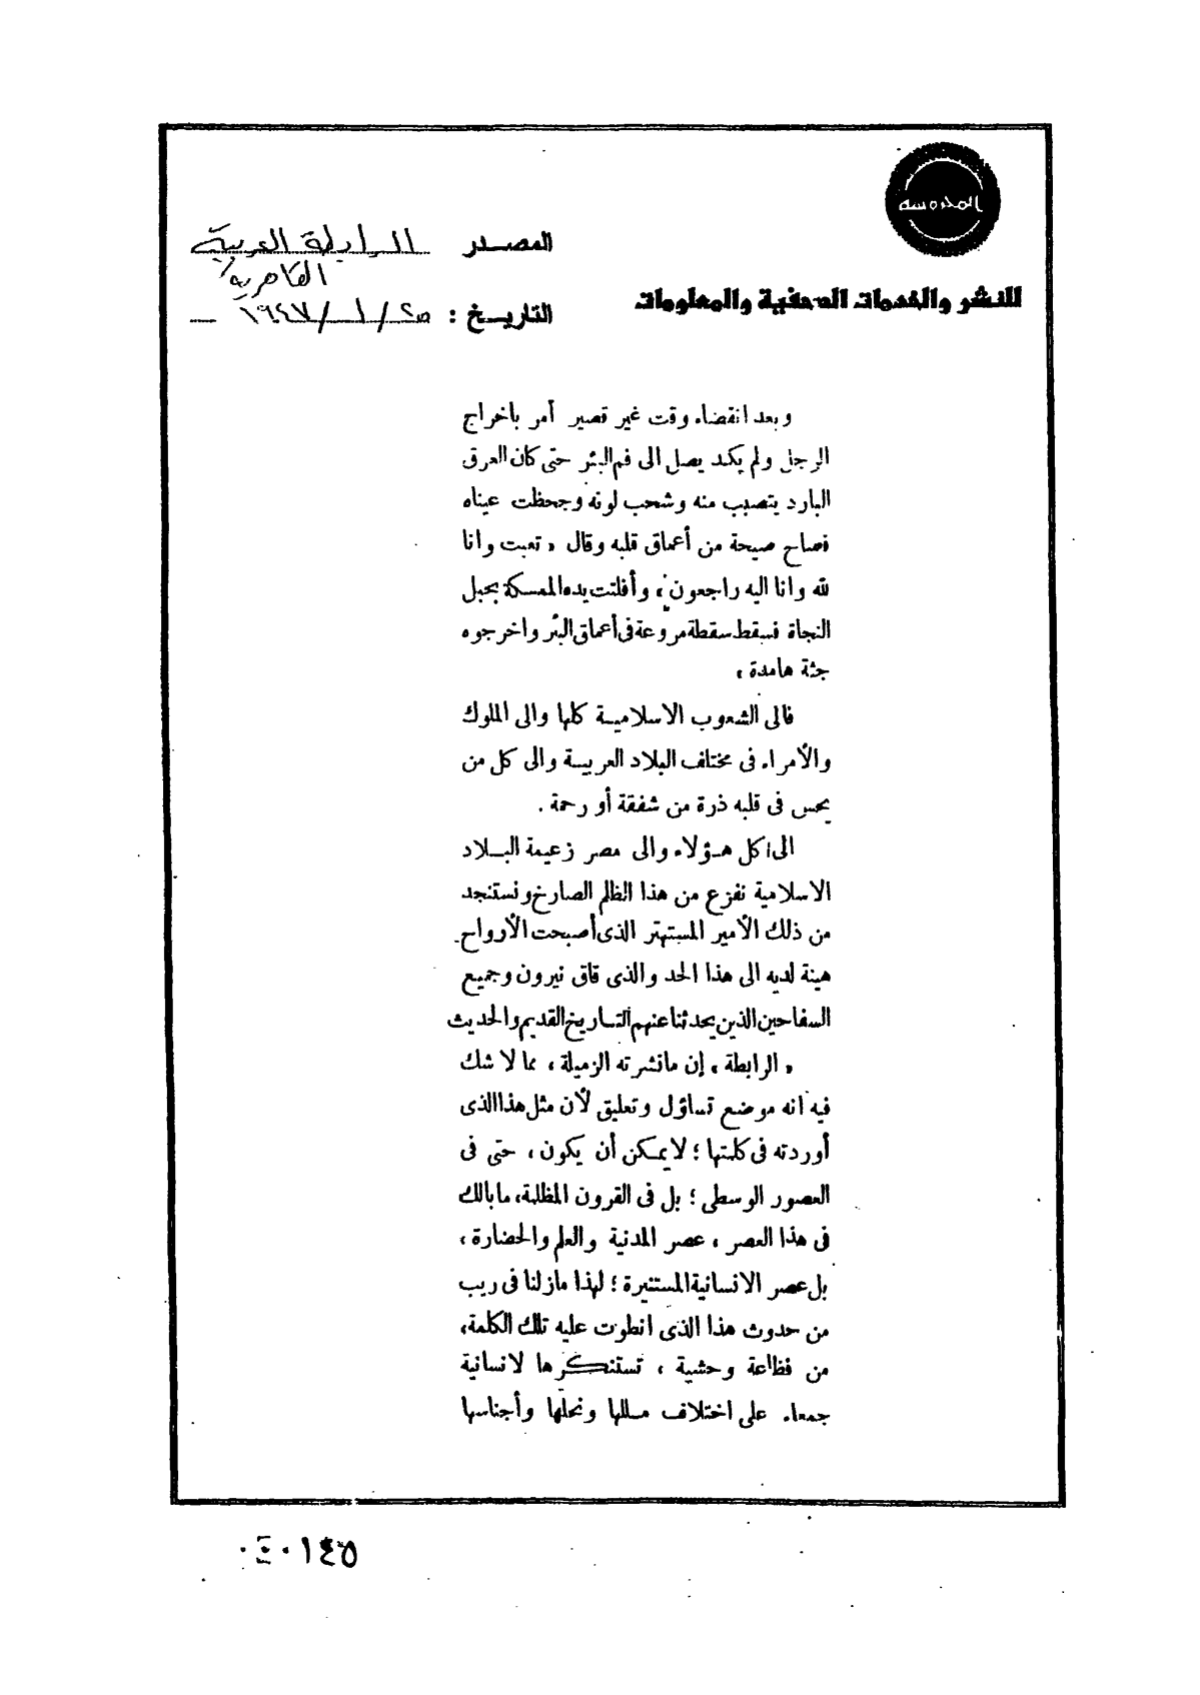 المحروسة
للنشر والخدمات الصحفية والمعلومات
المصدر الرابطة العربية
القاهرية
التاريخ : ٢٥/ ١/ ١٩٤٧ –
وبعد انقضاء وقت غير قصير أمر باخراج
الرجل ولم يكد يصل الى فم البئر حتى كان العرق
البارد يتصبب منه وشحب لونه وجحظت عيناه
فصاح صيحة من أعماق قلبه وقال « تعبت وانا
لله وانا اليه راجعون ، وأفلتت يده الممسكة بحبل
النجاة فسقط سقطة مروعة فى أعماق البئر واخرجوه
جثة هامدة ،
فالى الشعوب الاسلامية كلها والى الملوك
والأمراء فى مختلف البلاد العربية والى كل من
يحس فى قلبه ذرة من شفقة أو رحمة .
الى كل هؤلاء والى مصر زعيمة البلاد
الاسلامية نفزع من هذا الظلم الصارخ ونستنجد
من ذلك الأمير المستهتر الذى أصبحت الأرواح
هينة لديه الى هذا الحد والذى فاق نيرون وجميع
السفاحين الذين يحدثنا عنهم التاريخ القديم والحديث
« الرابطة ، إن مانشرته الزميلة ، مما لا شك
فيه انه موضع تساؤل وتعليق لأن مثل هذا الذى
أوردته فى كلمتها ؛ لا يمكن أن يكون ، حتى فى
العصور الوسطى ؛ بل فى القرون المظلمة ، ما بالك
فى هذا العصر ، عصر المدنية والعلم والحضارة ،
بل عصر الانسانية المستنيرة ؛ لهذا مازلنا فى ريب
من حدوث هذا الذى انطوت عليه تلك الكلمة ،
من فظاعة وحشية ، تستنكرها لانسانية
جمعاء على اختلاف مللها ونحلها وأجناسها